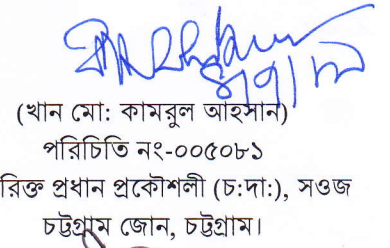 (খান মো: কামরুল আহসান)
পরিচিতি নং-০০৫০৮১
রিক্ত প্রধান প্রকৌশলী (চ:দা:), সওজ
চট্টগ্রাম জোন, চট্টগ্রাম।